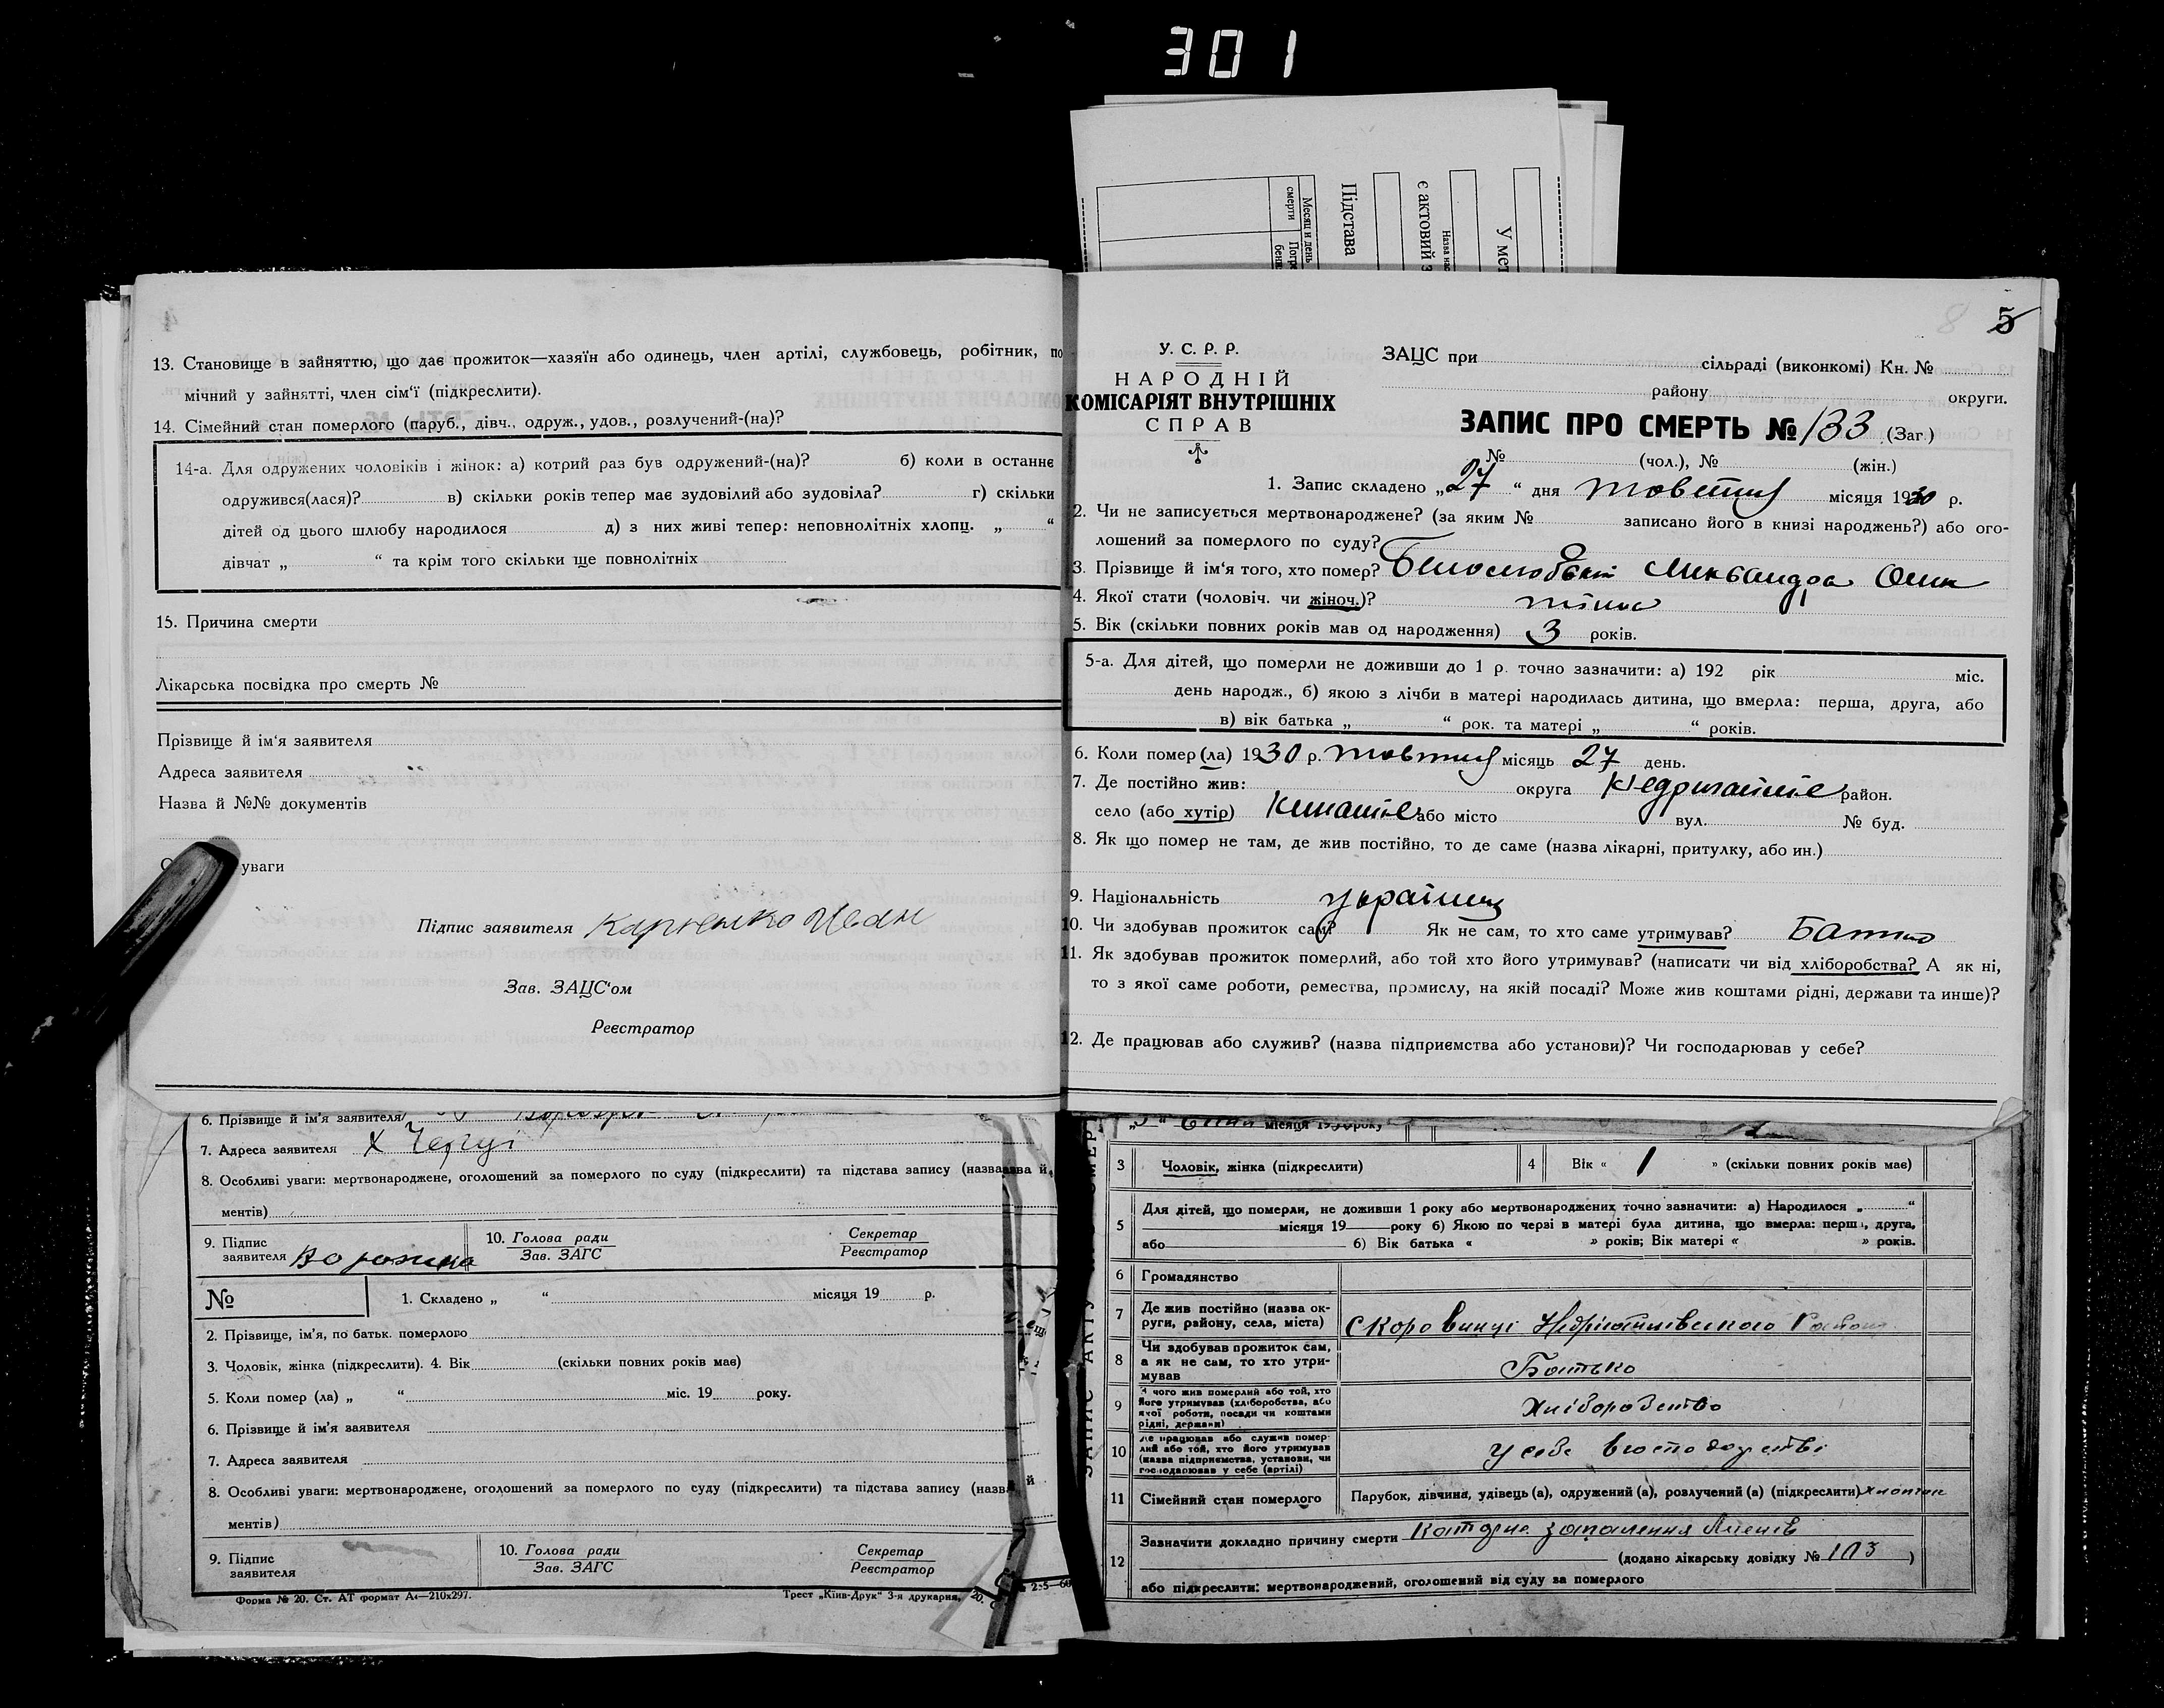 301
Місяц и день
смерти
Підстава
є актовий з
Назва нас
У мет
4
13. Становище в зайняттю, що дає прожиток—хазяїн або одинець, член артілі, службовець, робітник, по
мічний у зайнятті, член сім'ї (підкреслити).
14. Сімейний стан померлого (паруб., дівч., одруж., удов., розлучений-(на)?
14-а. Для одружених чоловіків і жінок: а) котрий раз був одружений-(на)? б) коли в останнє
одружився(лася)? в) скільки років тепер має зудовілий або зудовіла? г) скільки
дітей од цього шлюбу народилося д) з них живі тепер: неповнолітніх хлопц. „ “
дівчат „ “ та крім того скільки ще повнолітніх
15. Причина смерти
Лікарська посвідка про смерть №
Прізвище й ім'я заявителя
Адреса заявителя
Назва й №№ документів
уваги
Підпис заявителя Карпенко Иван
Зав. ЗАЦС'ом
Реєстратор
8 5
У. С. Р. Р.
НАРОДНІЙ
КОМІСАРІЯТ ВНУТРІШНІХ
СПРАВ
ЗАЦС при сільраді (виконкомі) Кн. №
району округи.
ЗАПИС ПРО СМЕРТЬ № 133 (Заг.)
№ (чол.), № (жін.)
1. Запис складено „27“ дня жовтня місяця 1930 р.
2. Чи не записується мертвонароджене? (за яким № записано його в книзі народжень?) або ого-
лошений за померлого по суду?
3. Прізвище й ім'я того, хто помер?
4. Якої стати (чоловіч. чи жіноч.)? жіноч
5. Вік (скільки повних років мав од народження) 3 років.
5-а. Для дітей, що померли не доживши до 1 р. точно зазначити: а) 192 рік міс.
день народж., б) якою з лічби в матері народилась дитина, що вмерла: перша, друга, або
в) вік батька „ “ рок. та матері „ “ років.
6. Коли помер (ла) 1930 р. жовтня місяць 27 день.
7. Де постійно жив: округа район.
село (або хутір) або місто вул. № буд.
8. Як що помер не там, де жив постійно, то де саме (назва лікарні, притулку, або ин.)
9. Національність українц
10. Чи здобував прожиток сам? Як не сам, то хто саме утримував? Батько
11. Як здобував прожиток померлий, або той хто його утримував? (написати чи від хліборобства? А як ні,
то з якої саме роботи, ремества, промислу, на якій посаді? Може жив коштами рідні, держави та инше)?
12. Де працював або служив? (назва підприємства або установи)? Чи господарював у себе?
6. Прізвище й ім'я заявителя
7. Адреса заявителя х Черчі
8. Особливі уваги: мертвонароджене, оголошений за померлого по суду (підкреслити) та підстава запису (назва й
ментів)
9. Підпис
заявителя
10. Голова ради
Зав. ЗАГС
Секретар
Реєстратор
№
1. Складено „ “ місяця 19 р.
2. Прізвище, ім'я, по батьк. померлого
3. Чоловік, жінка (підкреслити). 4. Вік (скільки повних років має)
5. Коли помер (ла) „ “ міс. 19 року.
6. Прізвище й ім'я заявителя
7. Адреса заявителя
8. Особливі уваги: мертвонароджене, оголошений за померлого по суду (підкреслити) та підстава запису (назва й
ментів)
9. Підпис
заявителя
10. Голова ради
Зав. ЗАГС
Секретар
Реєстратор
Форма № 20. Ст. АТ формат А4—210х297.
Трест „Київ-Друк“ 3-я друкарня,
місяця 1930 року
3 Чоловік, жінка (підкреслити) 4 Вік « 1 » (скільки повних років має)
5 Для дітей, що померли, не доживши 1 року або мертвонароджених точно зазначити: а) Народилося „ “
місяця 19 року б) Якою по черзі в матері була дитина, що вмерла: перша, друга,
або б) Вік батька « » років; Вік матері « » років.
6 Громадянство
7 Де жив постійно (назва ок-
руги, району, села, міста) Скоровинці
8 Чи здобував прожиток сам,
а як не сам, то хто утри-
мував Батько
9 З чого жив померлий або той, хто
його утримував (хліборобства, або
якої роботи, посади чи коштами
рідні, держави) Хліборобство
10 Де працював або служив помер-
лий або той, хто його утримував
(назва підприємства, установи, чи
господарював у себе (артілі) У себе в господарстві
11 Сімейний стан померлого Парубок, дівчина, удівець (а), одружений (а), розлучений (а) (підкреслити) хлопчик
12 Зазначити докладно причину смерти запалення легенів
(додано лікарську довідку № 103 )
або підкреслити: мертвонароджений, оголошений від суду за померлого